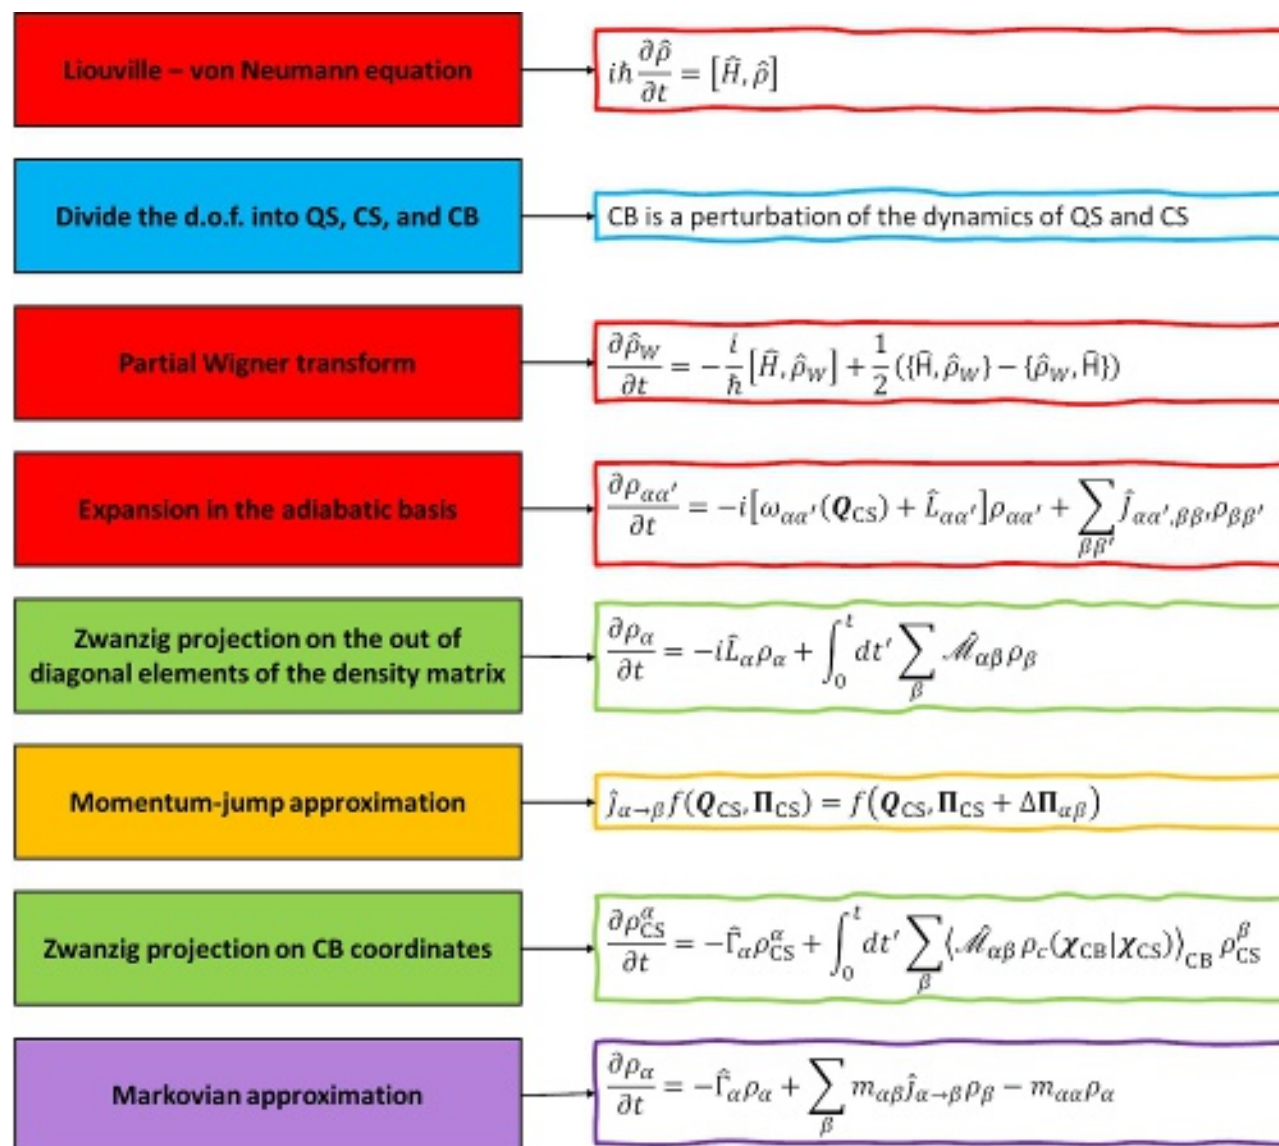 Liouville – von Neumann equation
iℏ ∂ρ̂/∂t = [Ĥ, ρ̂]
Divide the d.o.f. into QS, CS, and CB
CB is a perturbation of the dynamics of QS and CS
Partial Wigner transform
∂ρ̂_W/∂t = −i/ℏ [Ĥ, ρ̂_W] + 1/2 ({Ĥ, ρ̂_W} − {ρ̂_W, Ĥ})
Expansion in the adiabatic basis
∂ρ_αα′/∂t = −i[ω_αα′(Q_CS) + L̂_αα′]ρ_αα′ + ∑_ββ′ ĵ_αα′,ββ′ ρ_ββ′
Zwanzig projection on the out of
diagonal elements of the density matrix
∂ρ_α/∂t = −iL̂_α ρ_α + ∫_0^t dt′ ∑_β ℳ̂_αβ ρ_β
Momentum-jump approximation
ĵ_α→β f(Q_CS, Π_CS) = f(Q_CS, Π_CS + ΔΠ_αβ)
Zwanzig projection on CB coordinates
∂ρ_CS^α/∂t = −Γ̂_α ρ_CS^α + ∫_0^t dt′ ∑_β ⟨ℳ̂_αβ ρ_c(χ_CB|χ_CS)⟩_CB ρ_CS^β
Markovian approximation
∂ρ_α/∂t = −Γ̂_α ρ_α + ∑_β m_αβ ĵ_α→β ρ_β − m_αα ρ_α